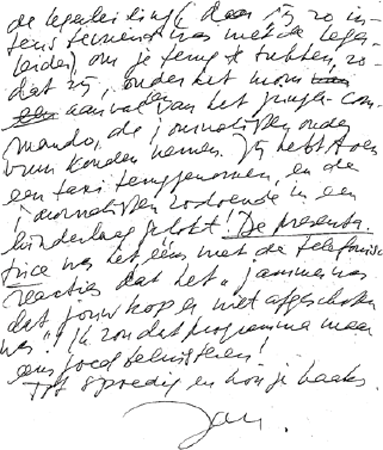 de legerleiding (daar jij zo in-
tens bevriend was met de leger-
leider) om je terug te trekken, zo-
dat zij, onder het mom van
een aanval van het jungle-com-
mando, de journalisten onder
vuur konden nemen. Jij hebt toen
een taxi teruggenomen, en de
journalisten zodoende in een
hinderlaag gelokt! De presenta-
trice was het ééns met de telefonische
reacties dat het "jammer was
dat jouw kop er niet afgeschoten
was". Ik zou dat programma maar
eens goed beluisteren!
Tot spoedig en hou je haaks.
Jan.